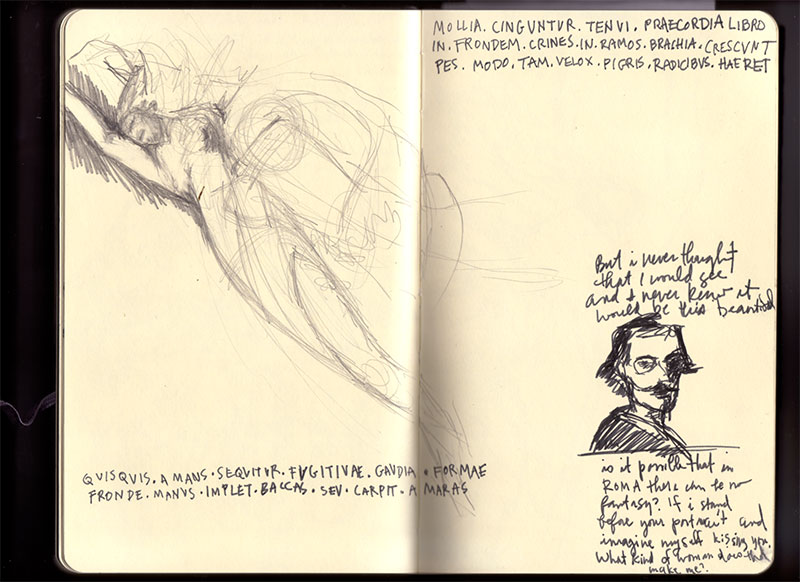 MOLLIA. CINGUNTUR. TENUI. PRAECORDIA LIBRO
IN. FRONDEM. CRINES. IN. RAMOS. BRACHIA. CRESCUNT
PES. MODO. TAM. VELOX. PIGRIS. RADICIBUS. HAERET
But i never thought
that I would see
and I never knew it
would be this beautiful
QUISQUIS. AMANS. SEQUITUR. FUGITIVAE. GAUDIA. FORMAE
FRONDE. MANUS. IMPLET. BACCAS. SEU. CARPIT. AMARAS
is it possible that in
ROMA there can be no
fantasy? If i stand
before your portrait and
imagine myself kissing you.
What kind of woman does that
make me?